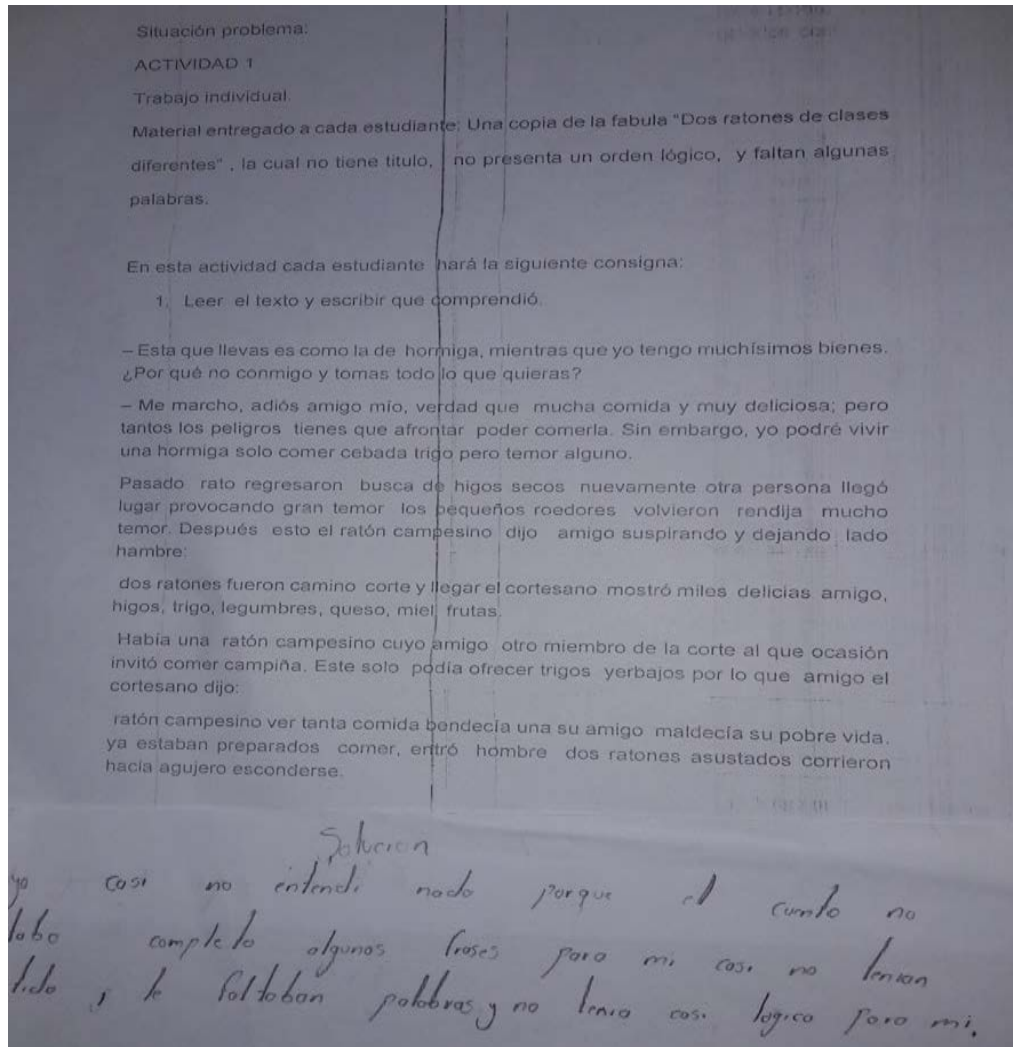 Situación problema:
ACTIVIDAD 1
Trabajo individual.
Material entregado a cada estudiante: Una copia de la fabula "Dos ratones de clases
diferentes" , la cual no tiene titulo, no presenta un orden lógico, y faltan algunas
palabras.
En esta actividad cada estudiante hará la siguiente consigna:
1. Leer el texto y escribir que comprendió.
– Esta que llevas es como la de hormiga, mientras que yo tengo muchísimos bienes.
¿Por qué no conmigo y tomas todo lo que quieras?
– Me marcho, adiós amigo mío, verdad que mucha comida y muy deliciosa; pero
tantos los peligros tienes que afrontar poder comerla. Sin embargo, yo podré vivir
una hormiga solo comer cebada trigo pero temor alguno.
Pasado rato regresaron busca de higos secos nuevamente otra persona llegó
lugar provocando gran temor los pequeños roedores volvieron rendija mucho
temor. Después esto el ratón campesino dijo amigo suspirando y dejando lado
hambre:
dos ratones fueron camino corte y llegar el cortesano mostró miles delicias amigo,
higos, trigo, legumbres, queso, miel frutas.
Había una ratón campesino cuyo amigo otro miembro de la corte al que ocasión
invitó comer campiña. Este solo podía ofrecer trigos yerbajos por lo que amigo el
cortesano dijo:
ratón campesino ver tanta comida bendecía una su amigo maldecía su pobre vida.
ya estaban preparados comer, entró hombre dos ratones asustados corrieron
hacia agujero esconderse.
Solucion
yo casi no entendi nada porque el cuento no
taba completo algunas frases para mi casi no tenian
tido, le faltaban palabras y no tenia casi logica para mi.